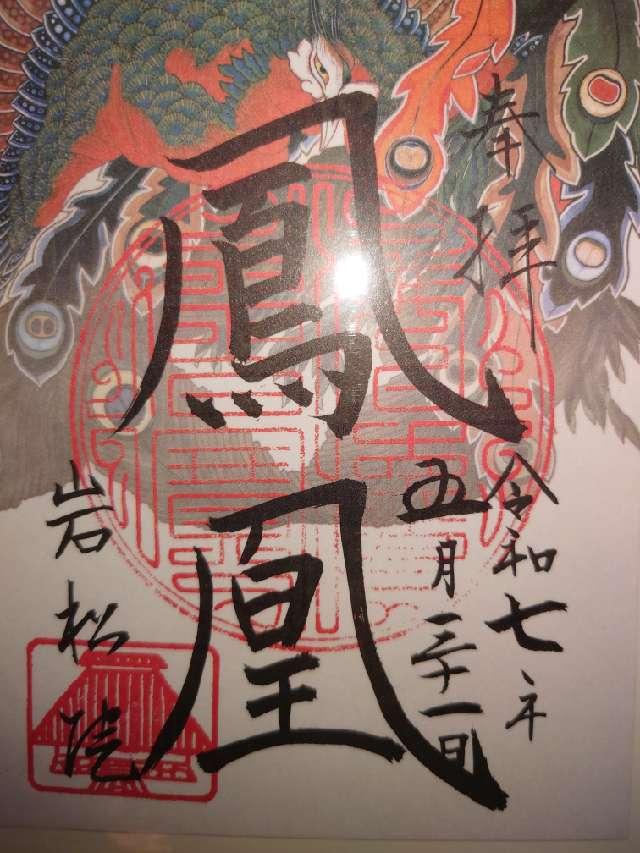 奉拝
令和七年
五月三十一日
鳳凰
岩松院